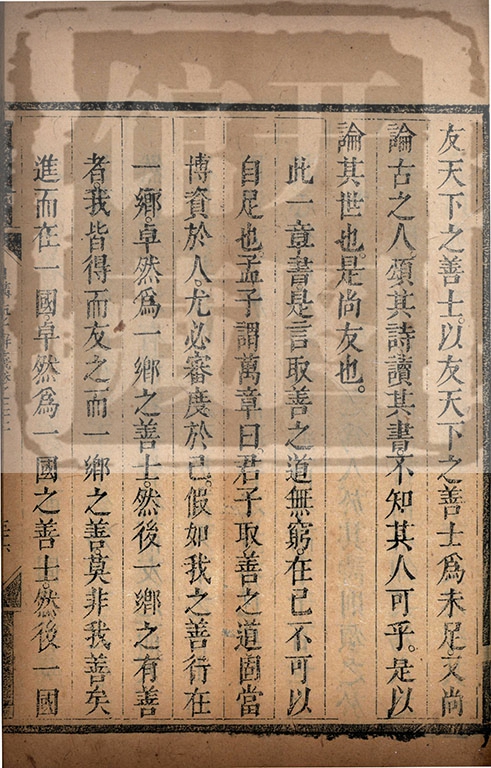 友天下之善士。以友天下之善士爲未足。又尚
論古之人。頌其詩讀其書不知其人可乎。是以
論其世也。是尚友也。
此一章書是言取善之道無窮。在已不可以
自足也。孟子謂萬章曰。君子取善之道固當
博資於人。尤必審度於已。假如我之善行在
一鄉。卓然爲一鄉之善士。然後一鄉之有善
者我皆得而友之而一鄉之善莫非我善矣
進而在一國。卓然爲一國之善士。然後一國